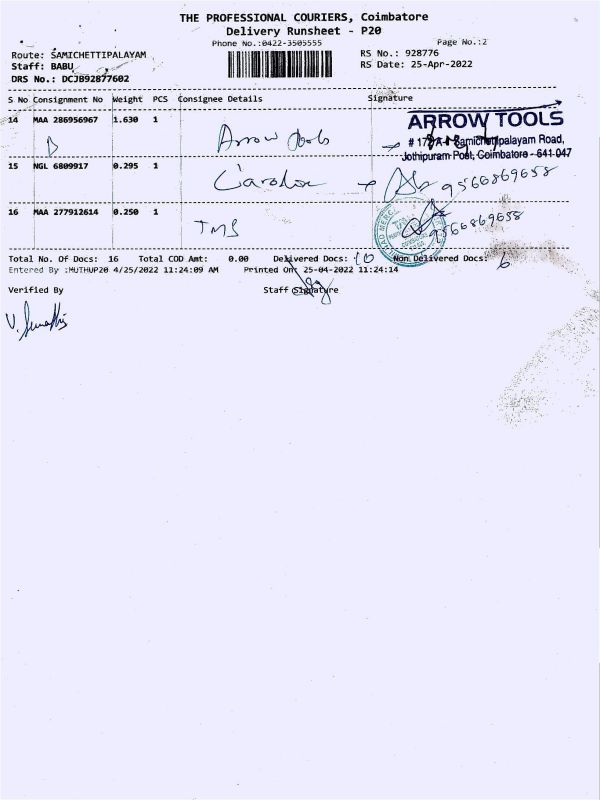 THE PROFESSIONAL COURIERS, Coimbatore
Delivery Runsheet - P20
Phone No.:0422-3505555
Page No.:2
Route: SAMICHETTIPALAYAM
RS No.: 928776
Staff: BABU
RS Date: 25-Apr-2022
DRS No.: DCJB92877602
S No Consignment No Weight PCS Consignee Details Signature
14 MAA 286956967 1.630 1 Arrow tools
ARROW TOOLS
Samichettipalayam Road,
Jothipuram Post, Coimbatore - 641 047
15 NGL 6809917 0.295 1 9566869658
16 MAA 277912614 0.250 1 TMS 9566869658
Total No. Of Docs: 16 Total COD Amt: 0.00 Delivered Docs: 10 Non Delivered Docs: 6
Entered By :MUTHUP20 4/25/2022 11:24:09 AM Printed On: 25-04-2022 11:24:14
Verified By Staff Signature